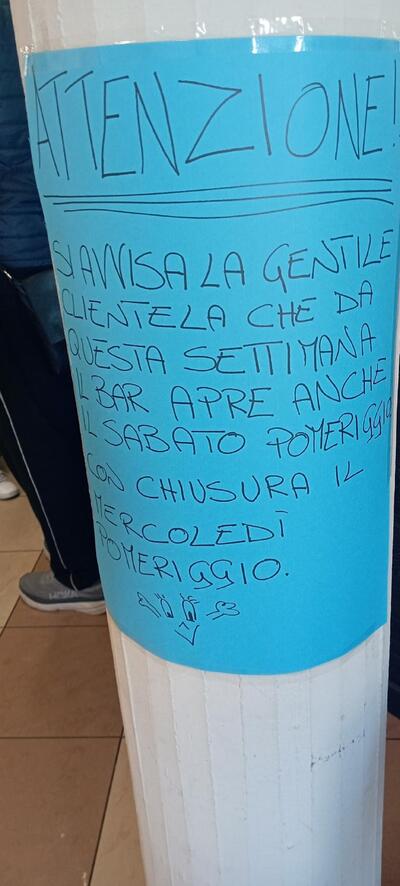 ATTENZIONE!
SI AVVISA LA GENTILE
CLIENTELA CHE DA
QUESTA SETTIMANA
IL BAR APRE ANCHE
IL SABATO POMERIGGIO
CON CHIUSURA IL
MERCOLEDÌ
POMERIGGIO.